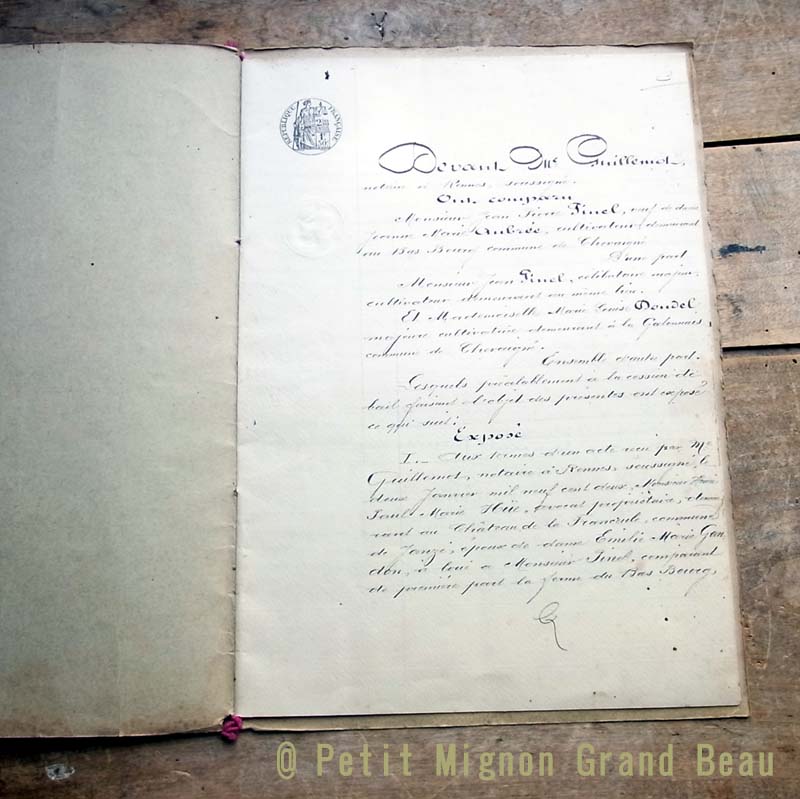 RÉPUBLIQUE FRANÇAISE
Devant Me Guillemot,
notaire à Rennes, soussigné.
Ont comparu
Monsieur Jean Pierre Pinel, veuf de dame
Jeanne Marie Aubrée, cultivateur, demeurant
au Bas Bourg commune de Chevaigné
D'une part
Monsieur Jean Pinel, célibataire majeur
cultivateur demeurant au même lieu.
Et Mademoiselle Marie Louise Doudel
majeure cultivatrice demeurant à la
commune de Chevaigné.
Ensemble d'autre part.
Lesquels préalablement à la cession de
bail faisant l'objet des présentes ont exposé
ce qui suit:
Exposé
I. _ Aux termes d'un acte reçu par Me
Guillemot, notaire à Rennes, soussigné, le
deux Janvier mil neuf cent deux, Monsieur
Paul Marie avocat propriétaire, demeu
rant au Château de la commune
de Janzé, époux de dame Emilie Marie Gan
don, a loué à Monsieur Pinel, comparant
de première part la ferme du Bas Bourg,
@ Petit Mignon Grand Beau